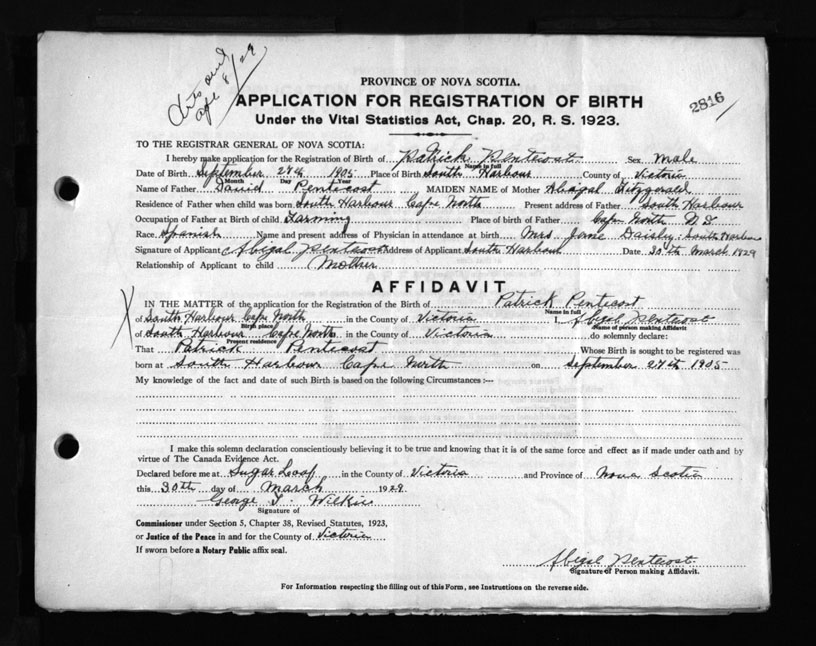 apl 8/29
2816
PROVINCE OF NOVA SCOTIA.
APPLICATION FOR REGISTRATION OF BIRTH
Under the Vital Statistics Act, Chap. 20, R. S. 1923.
TO THE REGISTRAR GENERAL OF NOVA SCOTIA:
I hereby make application for the Registration of Birth of Patrick Pentecost Sex Male
Name in full
Date of Birth September 27th 1905 Place of Birth South Harbour County of Victoria
Month Day Year
Name of Father David Pentecost MAIDEN NAME of Mother Abigal Fitzgerald
Residence of Father when child was born South Harbour Cape North Present address of Father South Harbour
Occupation of Father at Birth of child Farming Place of birth of Father Cape North
Race Spanish Name and present address of Physician in attendance at birth Mrs Jane Daisly South Harbour
Signature of Applicant Abigal Pentecost Address of Applicant South Harbour Date 30th March 1929
Relationship of Applicant to child Mother
AFFIDAVIT
IN THE MATTER of the application for the Registration of the Birth of Patrick Pentecost
Name in full
of South Harbour Cape North in the County of Victoria I, Abigal Pentecost
Birth place Name of person making Affidavit
of South Harbour Cape North in the County of Victoria do solemnly declare:
Present residence
That Patrick Pentecost Whose Birth is sought to be registered was
born at South Harbour Cape North on September 27th 1905
My knowledge of the fact and date of such Birth is based on the following Circumstances :--
I make this solemn declaration conscientiously believing it to be true and knowing that it is of the same force and effect as if made under oath and by
virtue of The Canada Evidence Act.
Declared before me at Sugar Loaf in the County of Victoria and Province of Nova Scotia
this 30th day of March 1929
George Wilkie
Signature of
Commissioner under Section 5, Chapter 38, Revised Statutes, 1923,
or Justice of the Peace in and for the County of Victoria
If sworn before a Notary Public affix seal.
Abigal Pentecost
Signature of Person making Affidavit.
For Information respecting the filling out of this Form, see Instructions on the reverse side.